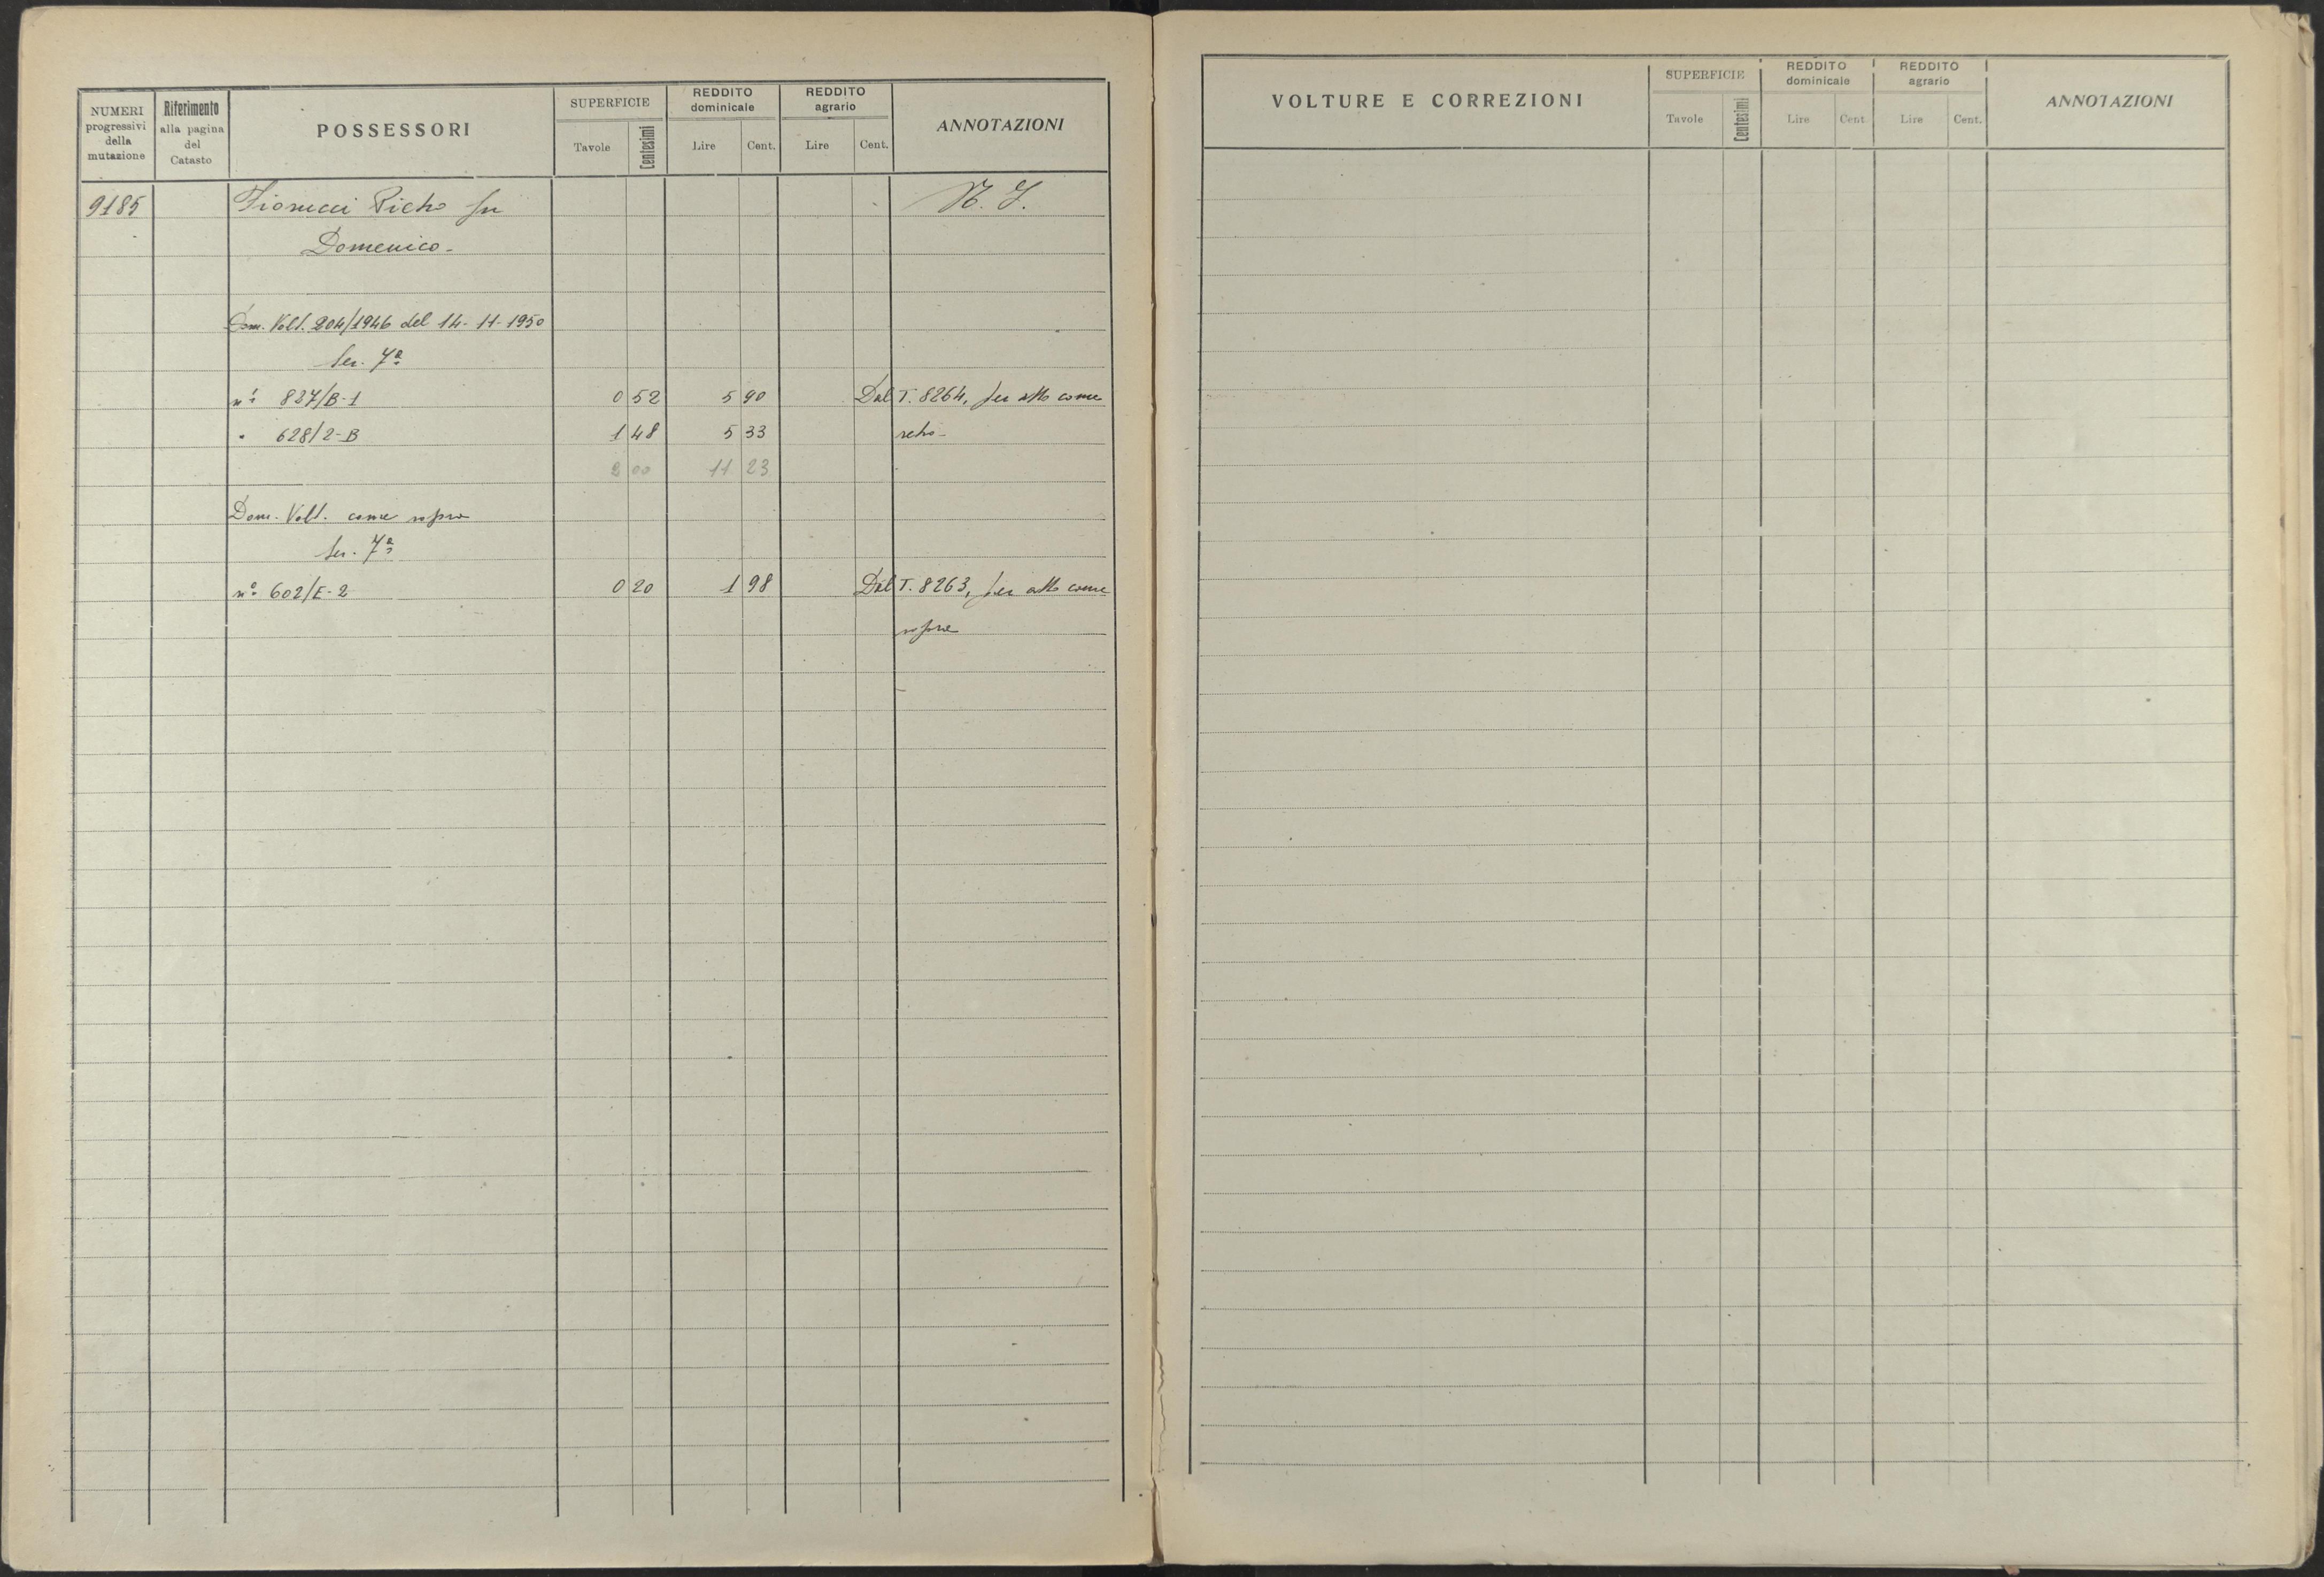 NUMERI progressivi della mutazione
Riferimento alla pagina del Catasto
POSSESSORI
SUPERFICIE
Tavole Centesimi
REDDITO dominicale
Lire Cent.
REDDITO agrario
Lire Cent.
ANNOTAZIONI
9185 Fiorucci Pietro fu
Domenico -
Dom. Volt. 204/1946 del 14-11-1950
Sez. 7ª
nº 827/B-1 0 52 5 90 Dal T. 8264, per atto come
" 628/2-B 1 48 5 33 retro -
2 00 11 23
Dom. Volt. come sopra
Sez. 7ª
nº 602/E-2 0 20 1 98 Dal T. 8263, per atto come
sopra
VOLTURE E CORREZIONI
SUPERFICIE
Tavole Centesimi
REDDITO dominicale
Lire Cent.
REDDITO agrario
Lire Cent.
ANNOTAZIONI